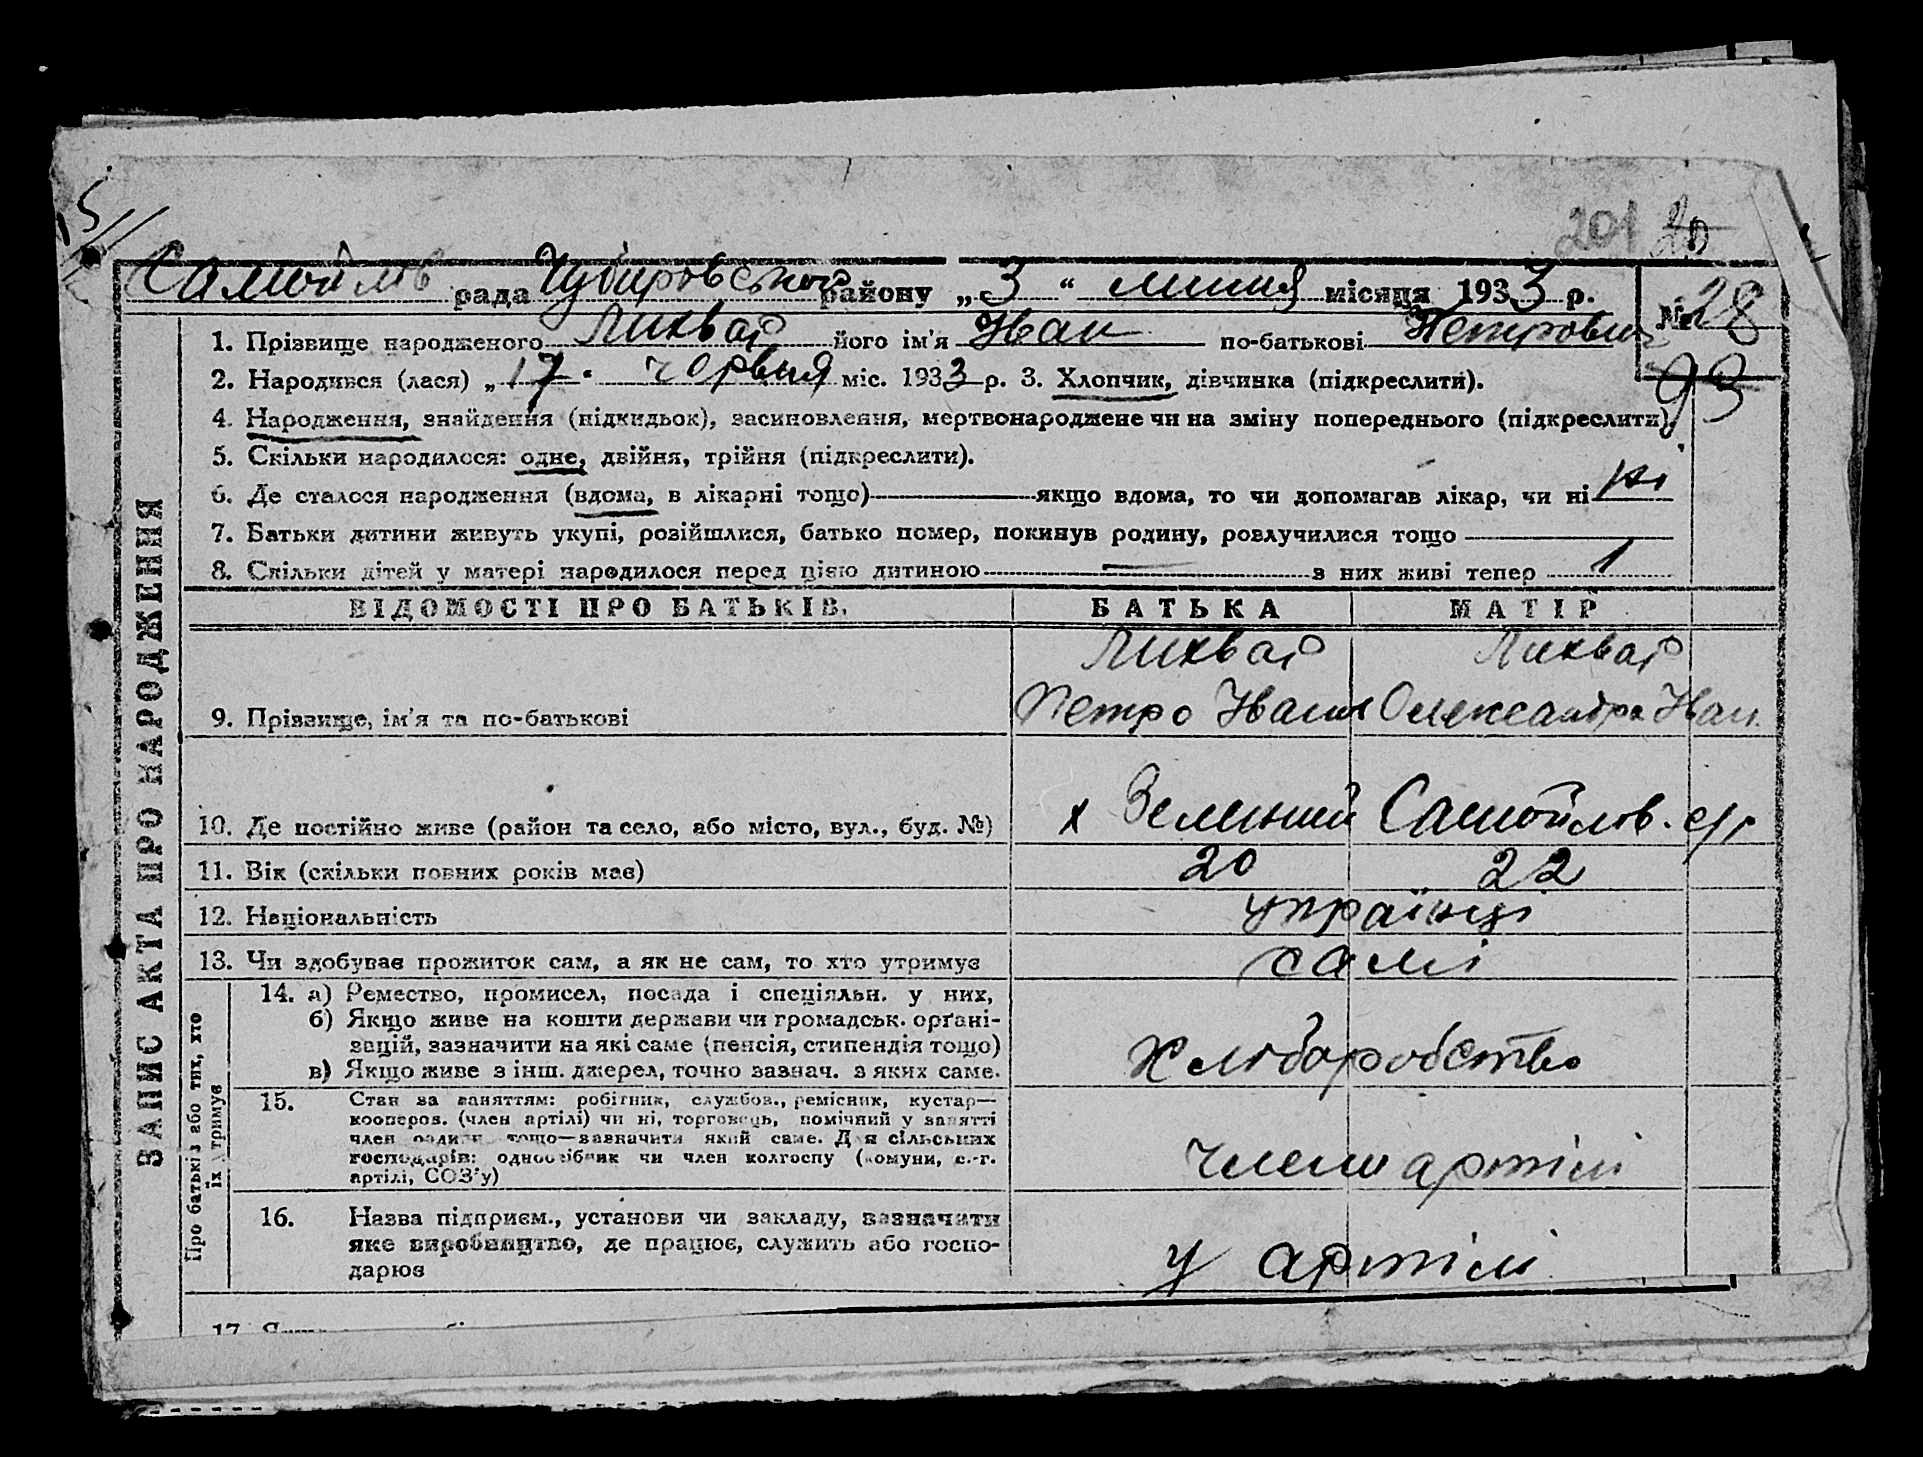 201 20
Самойлов рада Чубаровського району „3“ липня місяця 1933 р.
№ 28
1. Прізвище народженого Лихвай його ім'я Иван по-батькові Петрович
93
2. Народився (лася) „17. червня міс. 1933 р. 3. Хлопчик, дівчинка (підкреслити).
4. Народження, знайдення (підкидьок), засиновлення, мертвонароджене чи на зміну попереднього (підкреслити).
5. Скільки народилося: одне, двійня, трійня (підкреслити).
6. Де сталося народження (вдома, в лікарні тощо) якщо вдома, то чи допомагав лікар, чи ні Ні
7. Батьки дитини живуть укупі, розійшлися, батько помер, покинув родину, розлучилися тощо
8. Скільки дітей у матері народилося перед цією дитиною — з них живі тепер 1
ЗАПИС АКТА ПРО НАРОДЖЕННЯ
ВІДОМОСТІ ПРО БАТЬКІВ. БАТЬКА МАТІР
Лихвай Лихвай
9. Прізвище, ім'я та по-батькові Петро Иванов Олександра Иван.
10. Де постійно живе (район та село, або місто, вул., буд. №) х Зелений Самойлов. с/р
11. Вік (скільки повних років має) 20 22
12. Національність українці
13. Чи здобуває прожиток сам, а як не сам, то хто утримує самі
Про батьків або тих, хто їх утримує
14. а) Ремество, промисел, посада і спеціяльн. у них,
б) Якщо живе на кошти держави чи громадськ. орґані-
зацій, зазначити на які саме (пенсія, стипендія тощо)
в) Якщо живе з інш. джерел, точно зазнач. з яких саме.
Хліборобство
15. Стан за заняттям: робітник, службов., ремісник, кустар—
кооперов. (член артілі) чи ні, торговець, помічний у занятті
член родини тощо—зазначити який саме. Для сільських
господарів: одноосібник чи член колгоспу (комуни, с.-г.
артілі, СОЗ'у)
Члени артілі
16. Назва підприєм., установи чи закладу, зазначити
яке виробництво, де працює, служить або госпо-
дарює
у артілі
17.